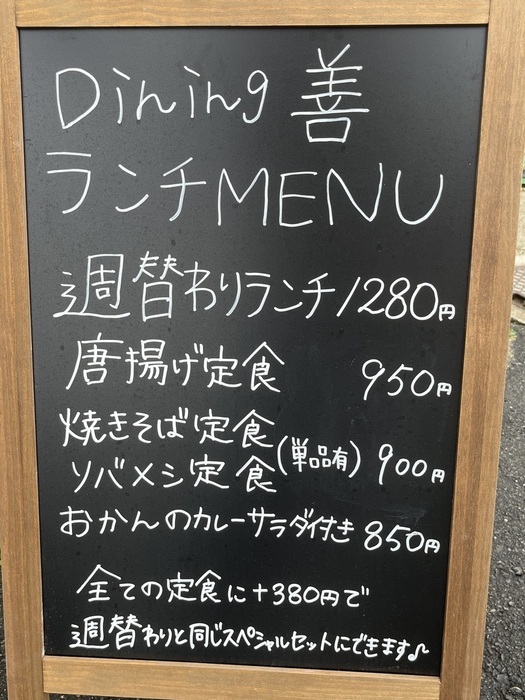 Dining 善
ランチMENU
週替わりランチ 1280円
唐揚げ定食 950円
焼きそば定食
ソバメシ定食 (単品有) 900円
おかんのカレーサラダ付き 850円
全ての定食に+380円で
週替わりと同じスペシャルセットにできます♪